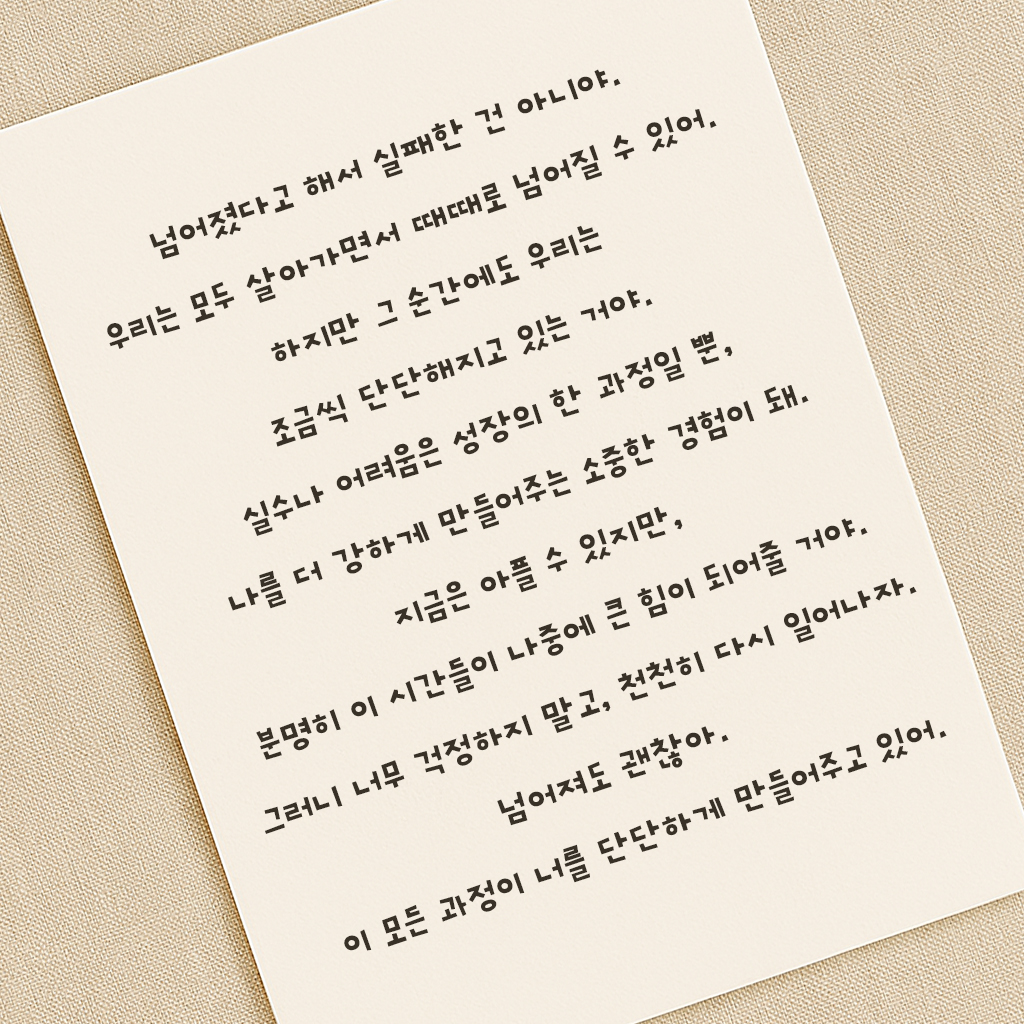 넘어졌다고 해서 실패한 건 아니야.
우리는 모두 살아가면서 때때로 넘어질 수 있어.
하지만 그 순간에도 우리는
조금씩 단단해지고 있는 거야.
실수나 어려움은 성장의 한 과정일 뿐,
나를 더 강하게 만들어주는 소중한 경험이 돼.
지금은 아플 수 있지만,
분명히 이 시간들이 나중에 큰 힘이 되어줄 거야.
그러니 너무 걱정하지 말고, 천천히 다시 일어나자.
넘어져도 괜찮아.
이 모든 과정이 너를 단단하게 만들어주고 있어.